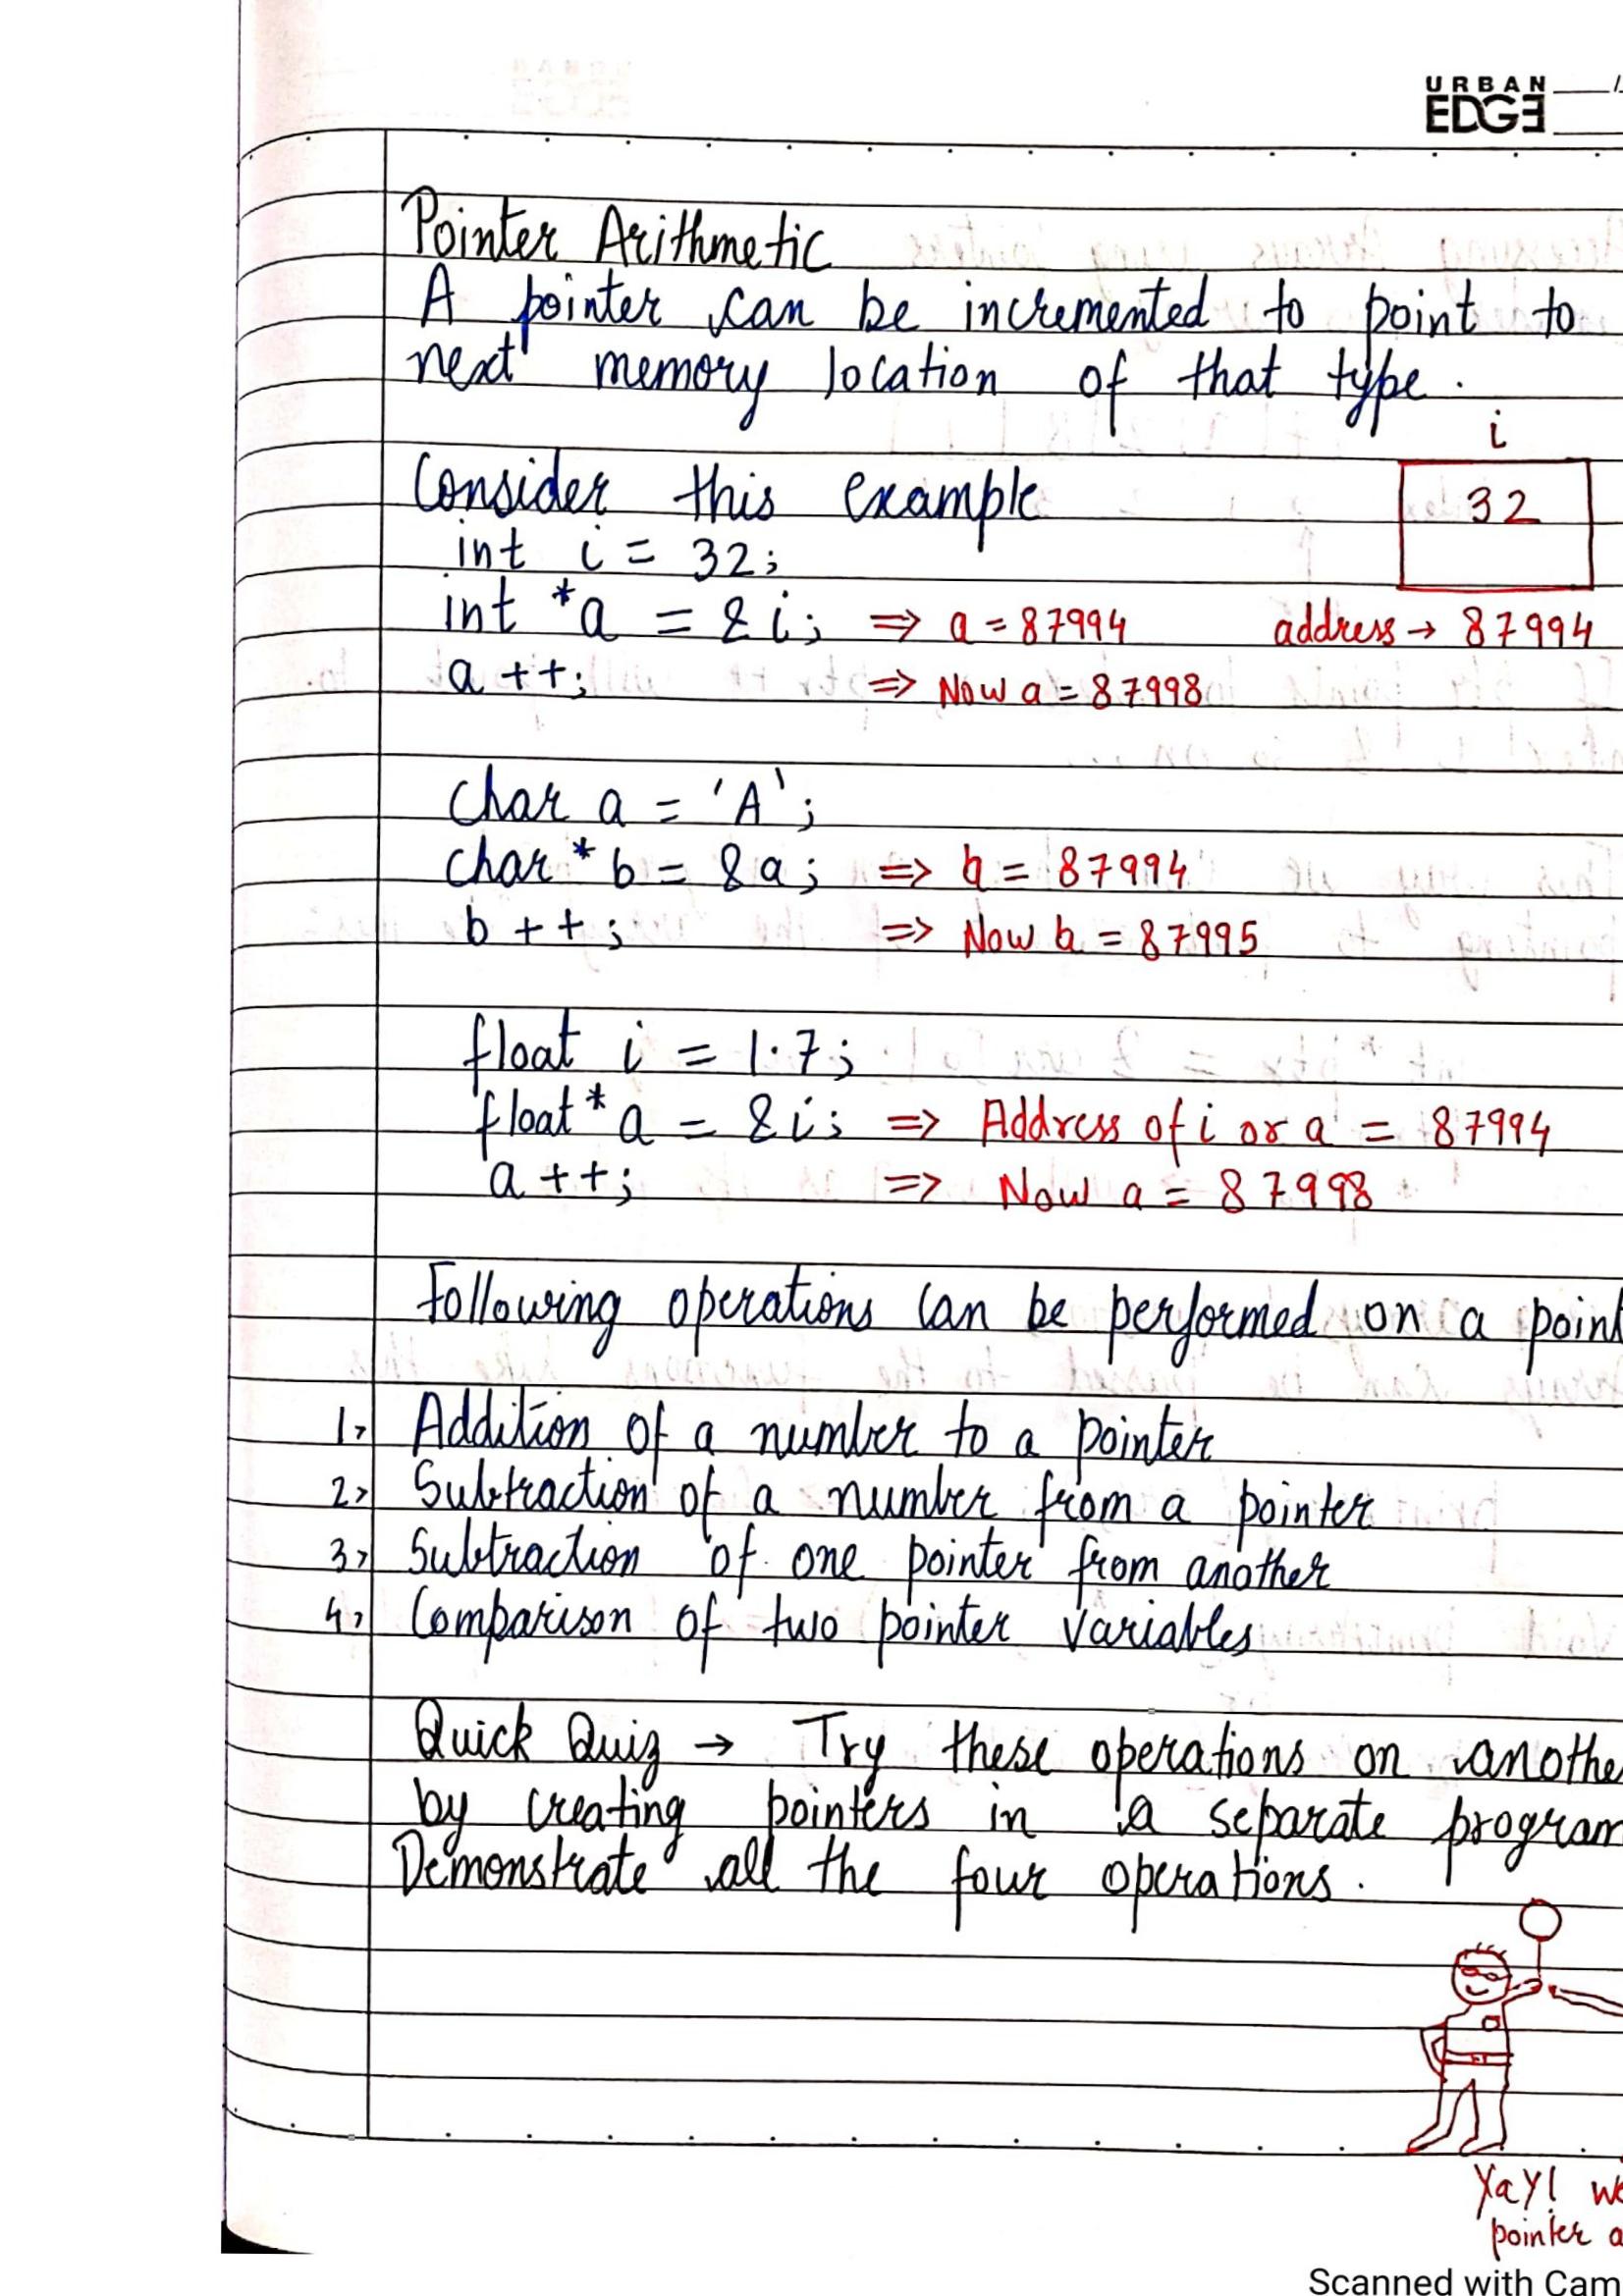 URBAN
EDGE
Pointer Arithmetic
A pointer can be incremented to point to
next memory location of that type.
i
Consider this example
32
int i = 32;
int *a = &i; => a = 87994 address → 87994
a++; => Now a = 87998
char a = 'A';
char *b = &a; => b = 87994
b++; => Now b = 87995
float i = 1.7;
float *a = &i; => Address of i or a = 87994
a++; => Now a = 87998
Following operations can be performed on a point
1> Addition of a number to a pointer
2> Subtraction of a number from a pointer
3> Subtraction of one pointer from another
4> Comparison of two pointer variables
Quick Quiz → Try these operations on anothe
by creating pointers in a separate program
Demonstrate all the four operations.
Yay! we
pointer a
Scanned with Cam